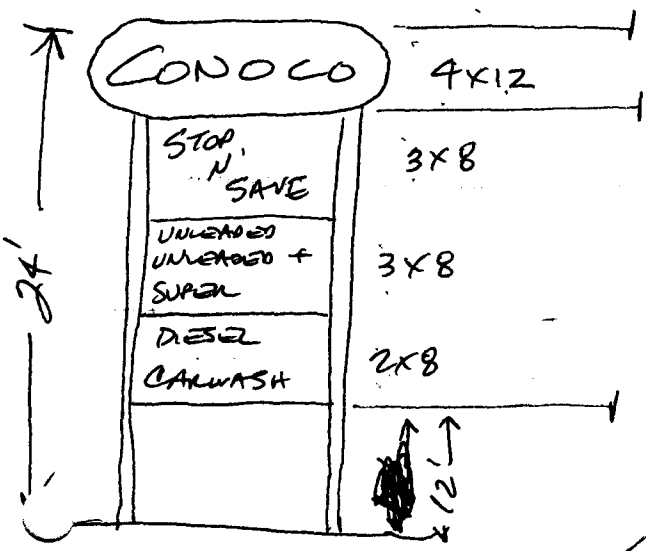 CONOCO
4X12
STOP
N
SAVE
3X8
UNLEADED
UNLEADED +
SUPER
3X8
DIESEL
CARWASH
2X8
24'
12'